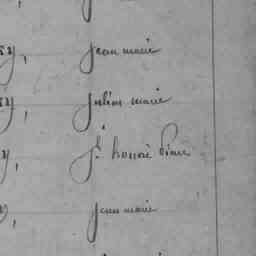 y, jean marie
y, julien marie
y, jh honoré Pierre
, jean marie